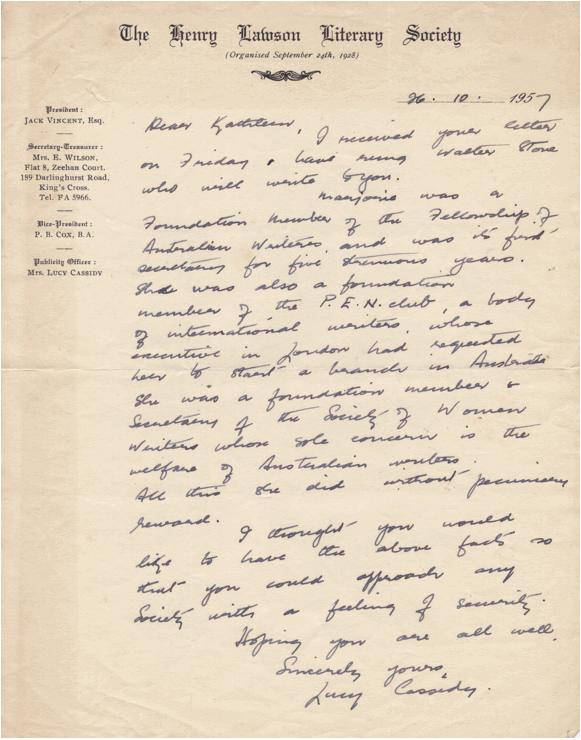 The Henry Lawson Literary Society
(Organised September 24th, 1928)
President :
JACK VINCENT, Esq.
Secretary-Treasurer :
MRS. E. WILSON,
Flat 8, Zeehan Court.
189 Darlinghurst Road,
King's Cross.
Tel. FA 5966.
Vice-President :
P. B. COX, B.A.
Publicity Officer :
MRS. LUCY CASSIDY
26. 10. 1957
Dear Kathleen,
I received your letter
on Friday & have rung Walter Stone
who will write to you.
Marjorie was a
Foundation member of the Fellowship of
Australian Writers, and was its first
secretary for five strenuous years.
She was also a foundation
member of the P.E.N. club, a body
of international writers, whose
executive in London had requested
her to start a branch in Australia
She was a foundation member &
Secretary of the Society of Women
Writers whose sole concern is the
welfare of Australian writers.
All this she did without pecuniary
reward.
I thought you would
like to have the above facts so
that you could approach any
Society with a feeling of security.
Hoping you are all well,
Sincerely yours,
Lucy Cassidy.